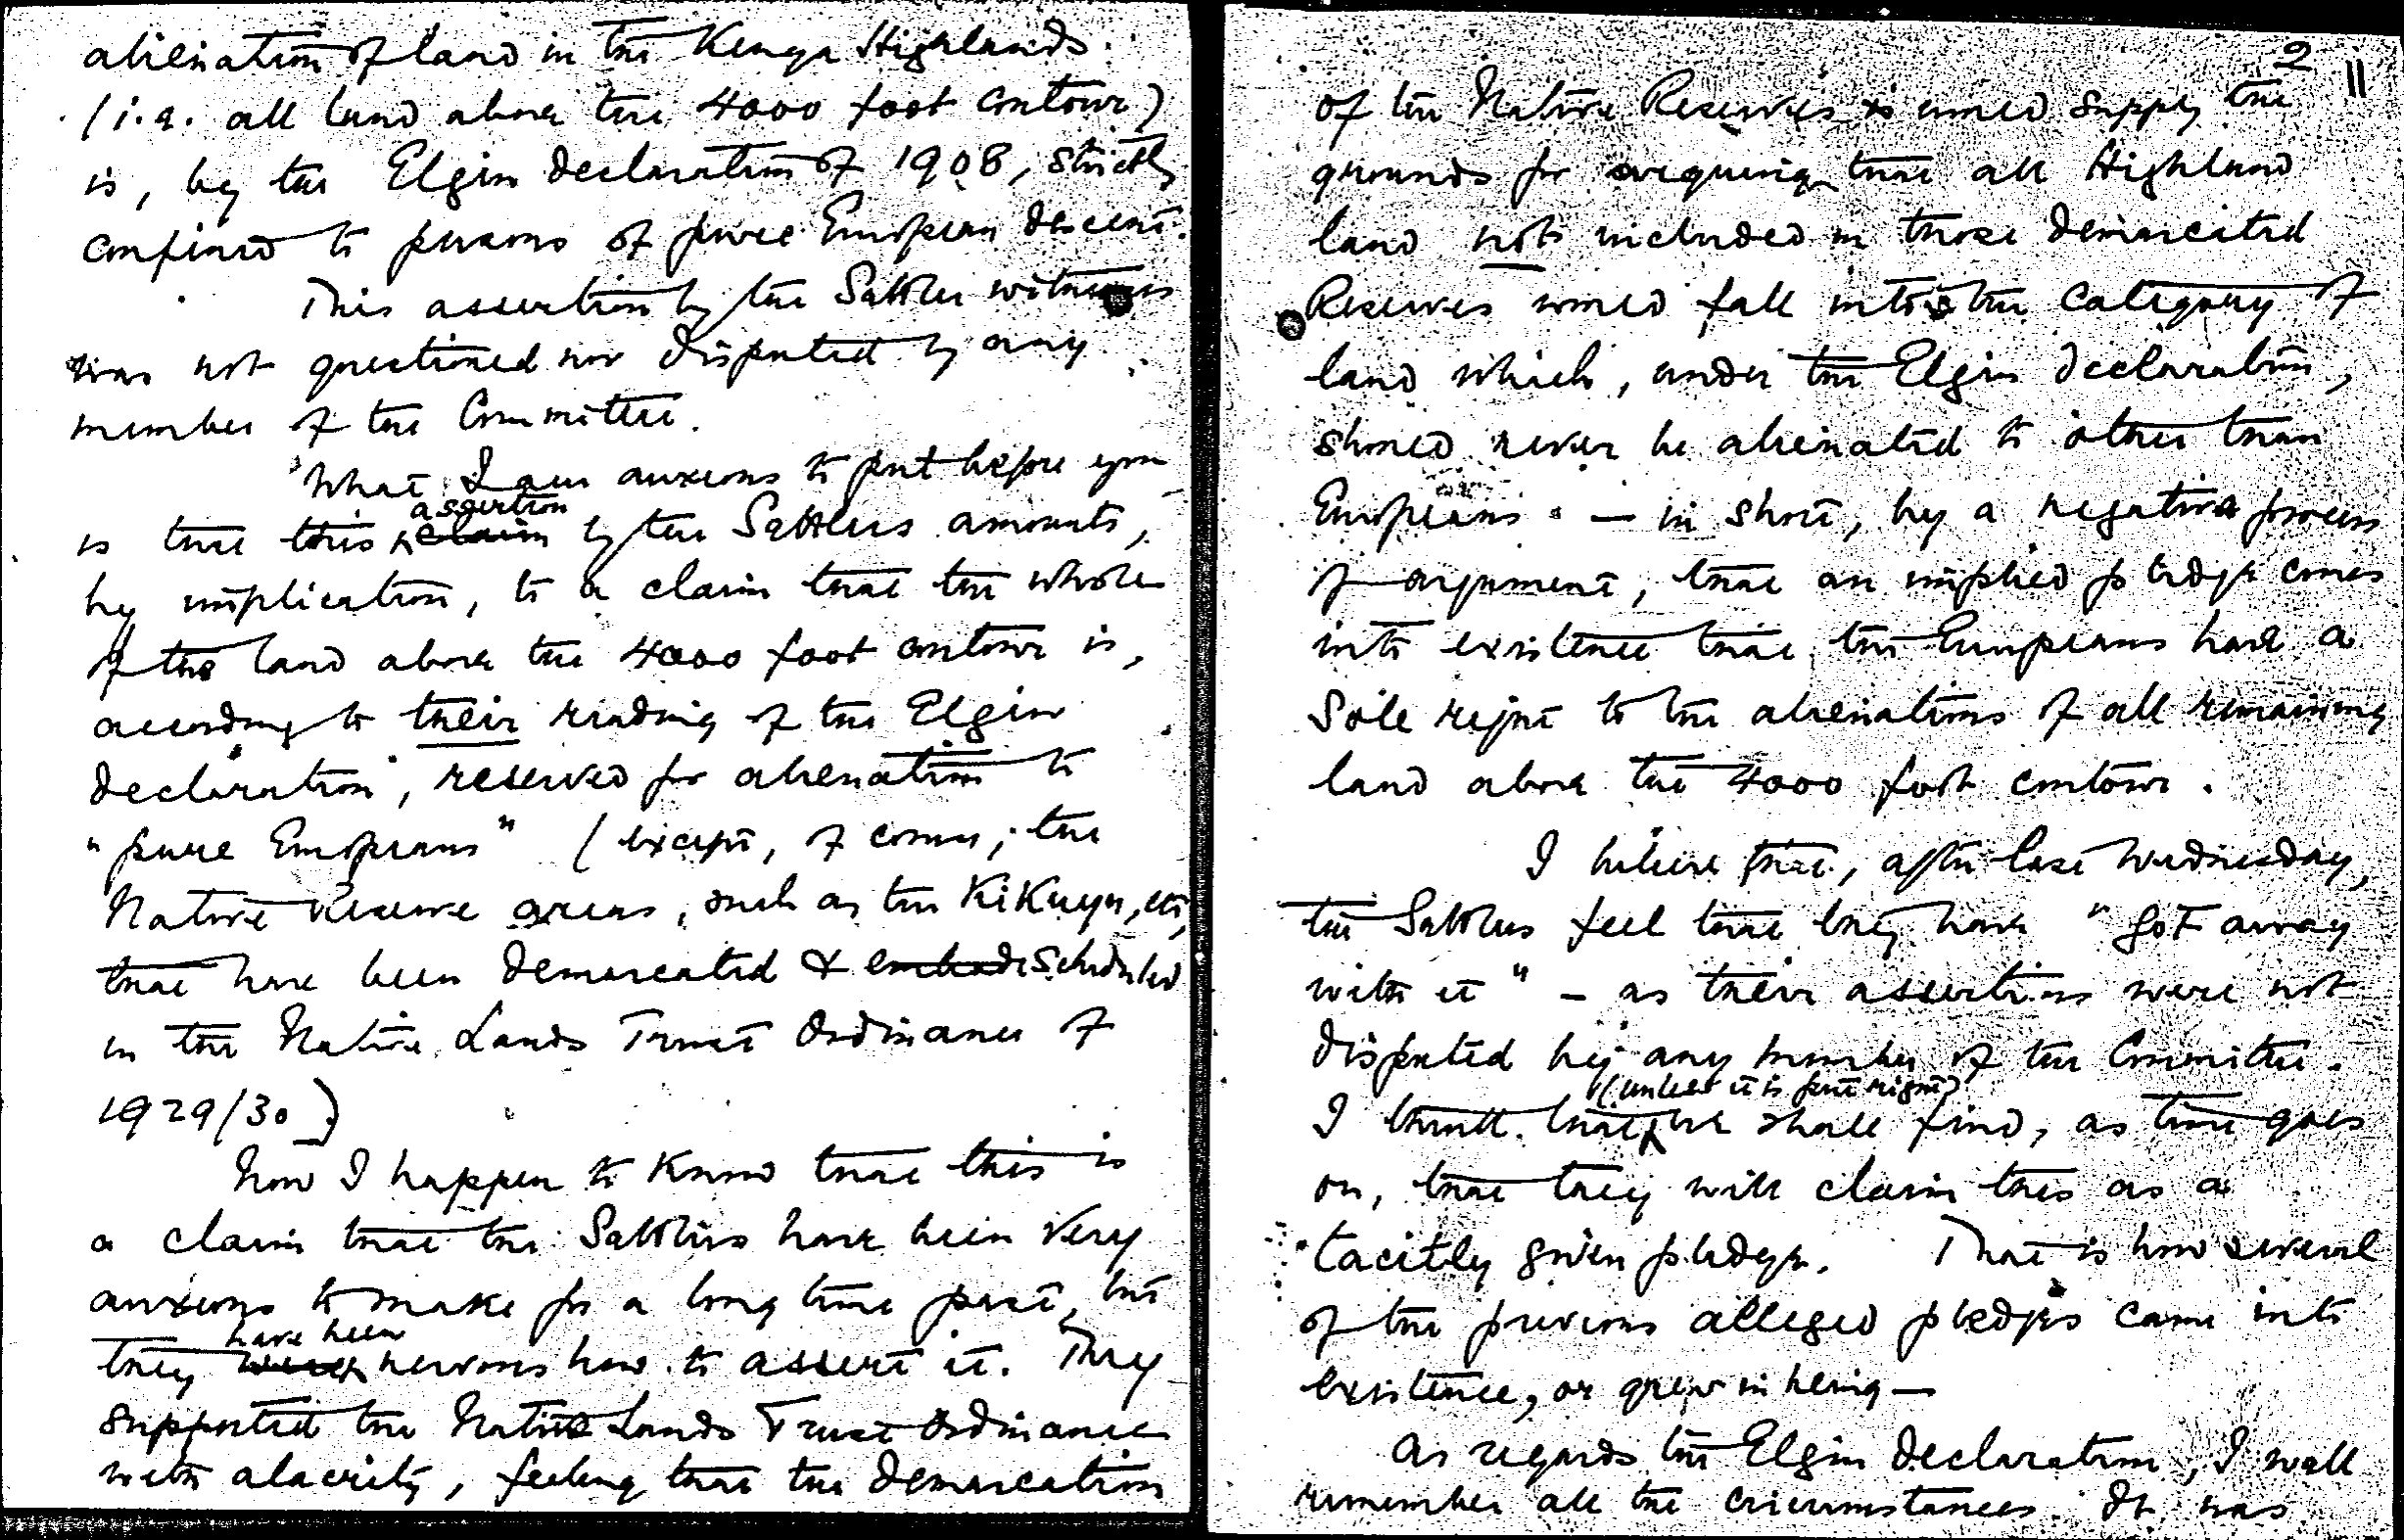 alienation of land in the Kenya Highlands
(i.e. all land above the 4000 foot contour)
is, by the Elgin declaration of 1908, strictly
confined to persons of pure European descent.
This assertion by the Settler witnesses
was not questioned nor disputed by any
member of the Committee.
What I am anxious to put before you
assertion
is that this claim by the Settlers amounts,
by implication, to a claim that the whole
of the land above the 4000 foot contour is,
according to their reading of the Elgin
declaration, reserved for alienation to
"pure Europeans" (except, of course, the
Native Reserve areas, such as the Kikuyu, etc,
that have been demarcated & scheduled
in the Native Lands Trust Ordinance of
1929/30)
Now I happen to know that this is
a claim that the Settlers have been very
anxious to make for a long time past, but
have been
they were nervous how to assert it. They
supported the Native Lands Trust Ordinance
with alacrity, feeling that the demarcation
2
11
of the Native Reserves would supply the
grounds for arguing that all Highland
land not included in those demarcated
Reserves would fall into the category of
land which, under the Elgin declaration,
should never be alienated to other than
Europeans - in short, by a negative process
of argument, that an implied pledge comes
into existence that the Europeans have a
sole right to the alienations of all remaining
land above the 4000 foot contour.
I believe that, after last Wednesday,
the Settlers feel that they have "got away
with it" - as their assertions were not
disputed by any member of the Committee.
(unless it is put right)
I think that we shall find, as time goes
on, that they will claim this as a
tacitly given pledge. That is how several
of the previous alleged pledges came into
existence, or grew in being -
As regards the Elgin declaration, I well
remember all the circumstances. It was